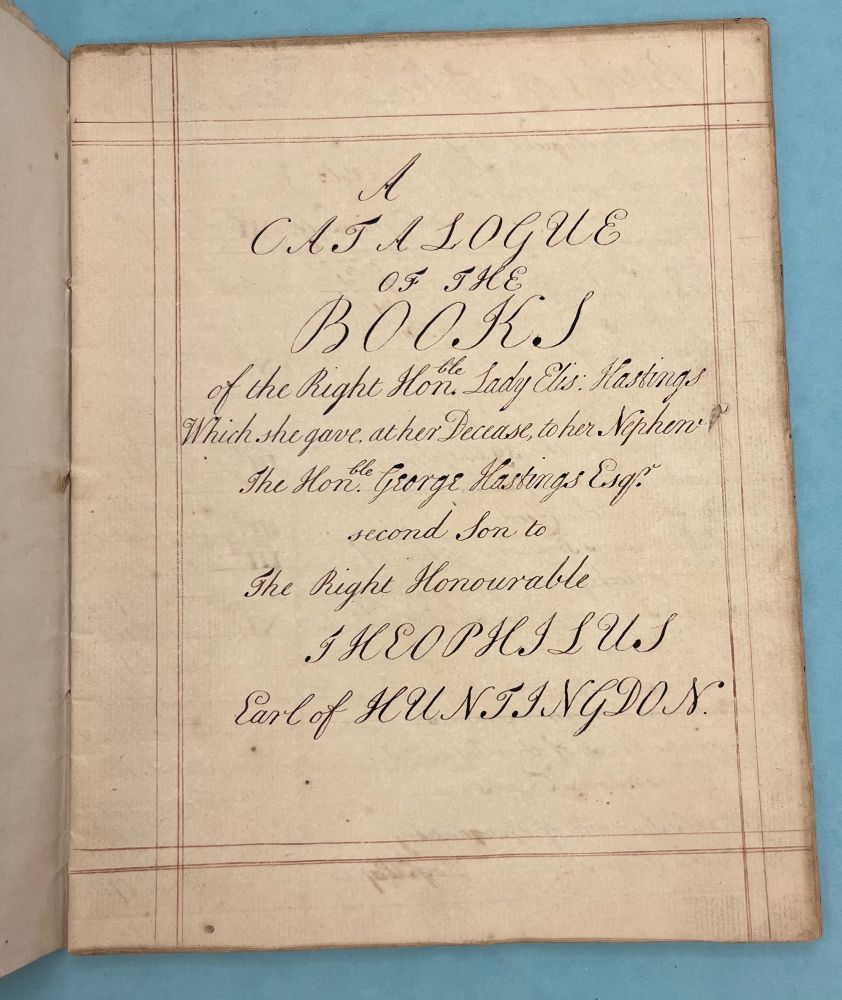 A
CATALOGUE
OF THE
BOOKS
of the Right Hon.ble Lady Elis: Hastings
Which she gave, at her Decease, to her Nephew
The Hon.ble George Hastings Esqr.
second Son to
The Right Honourable
THEOPHILUS
Earl of HUNTINGDON.